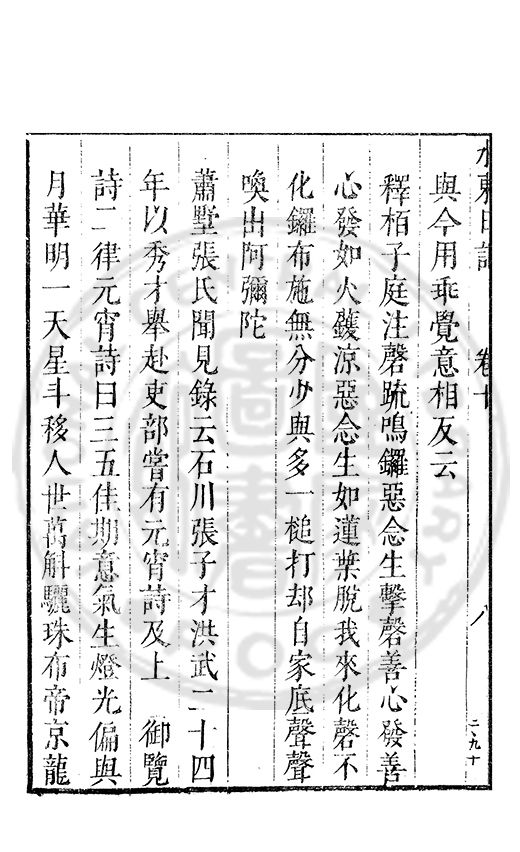 水東日記 卷十 八 二九十
與今用乖覺意相反云
釋栢子庭注磬疏鳴鑼惡念生擊磬善心發善
心發如火鑊涼惡念生如蓮葉脫我來化磬不
化鑼布施無分少與多一槌打却自家底聲聲
喚出阿彌陀
蕭墅張氏聞見錄云石川張子才洪武二十四
年以秀才舉赴吏部嘗有元宵詩及上 御覽
詩二律元宵詩曰三五佳期意氣生燈光偏與
月華明一天星斗移人世萬斛驪珠布帝京龍